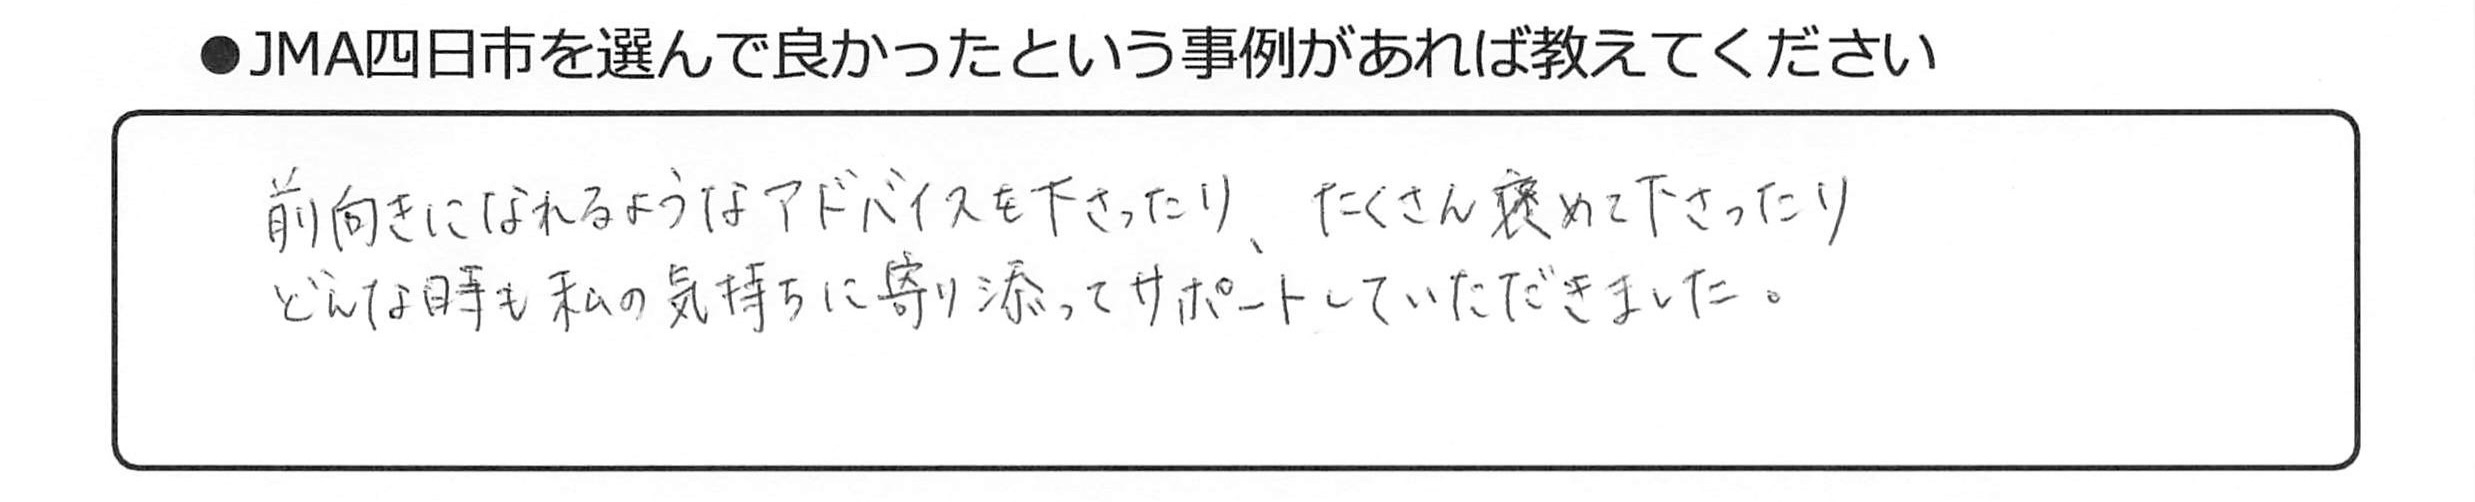 ●JMA四日市を選んで良かったという事例があれば教えてください
前向きになれるようなアドバイスを下さったり、たくさん褒めて下さったり
どんな時も私の気持ちに寄り添ってサポートしていただきました。